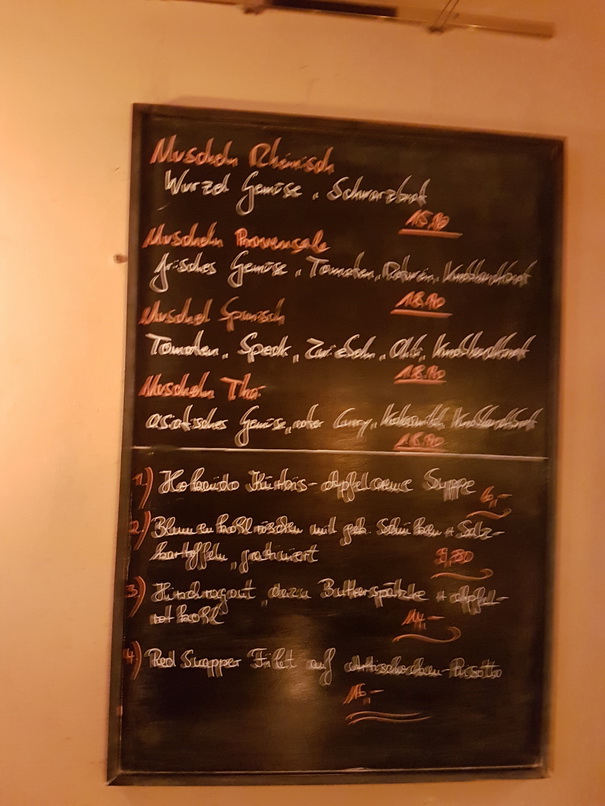 Muscheln Rheinisch
Wurzel Gemüse, Schwarzbrot
15.90
Muscheln Provensale
frisches Gemüse, Tomaten, Rotwein, Knoblauchbrot
Muschel Spanisch
Tomaten, Speck, Zwiebeln, Chili, Knoblauchbrot
Muscheln Thai
asiatisches Gemüse, roter Curry, Kokosmilch, Knoblauchbrot
1) Hokaido Kürbis-Apfelcreme Suppe
6,-
2) Blumenkohlröschen mit gek. Schinken + Salz-
kartoffeln, gratiniert
9,80
3) Hirschragout, dazu Butterspätzle + Apfel-
rotkohl
14,-
4) Red Snapper Filet auf Artischocken-Risotto